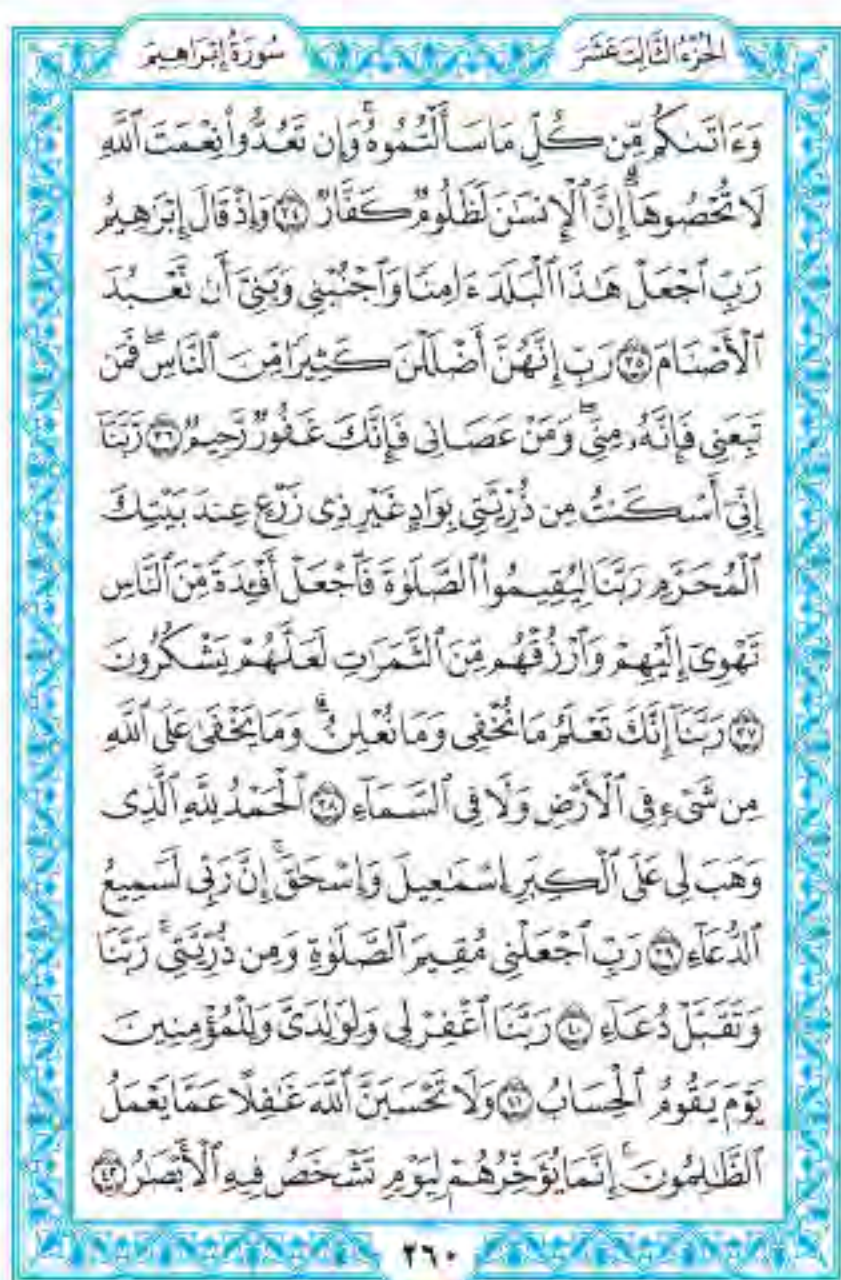 الجُزْءُ الثَّالِثَ عَشَرَ
سُورَةُ إِبْرَاهِيمَ
وَءَاتَىٰكُم مِّن كُلِّ مَا سَأَلْتُمُوهُ ۚ وَإِن تَعُدُّوا۟ نِعْمَتَ ٱللَّهِ
لَا تُحْصُوهَآ ۗ إِنَّ ٱلْإِنسَـٰنَ لَظَلُومٌ كَفَّارٌ ٣٤ وَإِذْ قَالَ إِبْرَٰهِيمُ
رَبِّ ٱجْعَلْ هَـٰذَا ٱلْبَلَدَ ءَامِنًا وَٱجْنُبْنِى وَبَنِىَّ أَن نَّعْبُدَ
ٱلْأَصْنَامَ ٣٥ رَبِّ إِنَّهُنَّ أَضْلَلْنَ كَثِيرًا مِّنَ ٱلنَّاسِ ۖ فَمَن
تَبِعَنِى فَإِنَّهُۥ مِنِّى ۖ وَمَنْ عَصَانِى فَإِنَّكَ غَفُورٌ رَّحِيمٌ ٣٦ رَّبَّنَآ
إِنِّىٓ أَسْكَنتُ مِن ذُرِّيَّتِى بِوَادٍ غَيْرِ ذِى زَرْعٍ عِندَ بَيْتِكَ
ٱلْمُحَرَّمِ رَبَّنَا لِيُقِيمُوا۟ ٱلصَّلَوٰةَ فَٱجْعَلْ أَفْـِٔدَةً مِّنَ ٱلنَّاسِ
تَهْوِىٓ إِلَيْهِمْ وَٱرْزُقْهُم مِّنَ ٱلثَّمَرَٰتِ لَعَلَّهُمْ يَشْكُرُونَ
٣٧ رَبَّنَآ إِنَّكَ تَعْلَمُ مَا نُخْفِى وَمَا نُعْلِنُ ۗ وَمَا يَخْفَىٰ عَلَى ٱللَّهِ
مِن شَىْءٍ فِى ٱلْأَرْضِ وَلَا فِى ٱلسَّمَآءِ ٣٨ ٱلْحَمْدُ لِلَّهِ ٱلَّذِى
وَهَبَ لِى عَلَى ٱلْكِبَرِ إِسْمَـٰعِيلَ وَإِسْحَـٰقَ ۚ إِنَّ رَبِّى لَسَمِيعُ
ٱلدُّعَآءِ ٣٩ رَبِّ ٱجْعَلْنِى مُقِيمَ ٱلصَّلَوٰةِ وَمِن ذُرِّيَّتِى ۚ رَبَّنَا
وَتَقَبَّلْ دُعَآءِ ٤٠ رَبَّنَا ٱغْفِرْ لِى وَلِوَٰلِدَىَّ وَلِلْمُؤْمِنِينَ
يَوْمَ يَقُومُ ٱلْحِسَابُ ٤١ وَلَا تَحْسَبَنَّ ٱللَّهَ غَـٰفِلًا عَمَّا يَعْمَلُ
ٱلظَّـٰلِمُونَ ۚ إِنَّمَا يُؤَخِّرُهُمْ لِيَوْمٍ تَشْخَصُ فِيهِ ٱلْأَبْصَـٰرُ ٤٢
٢٦٠